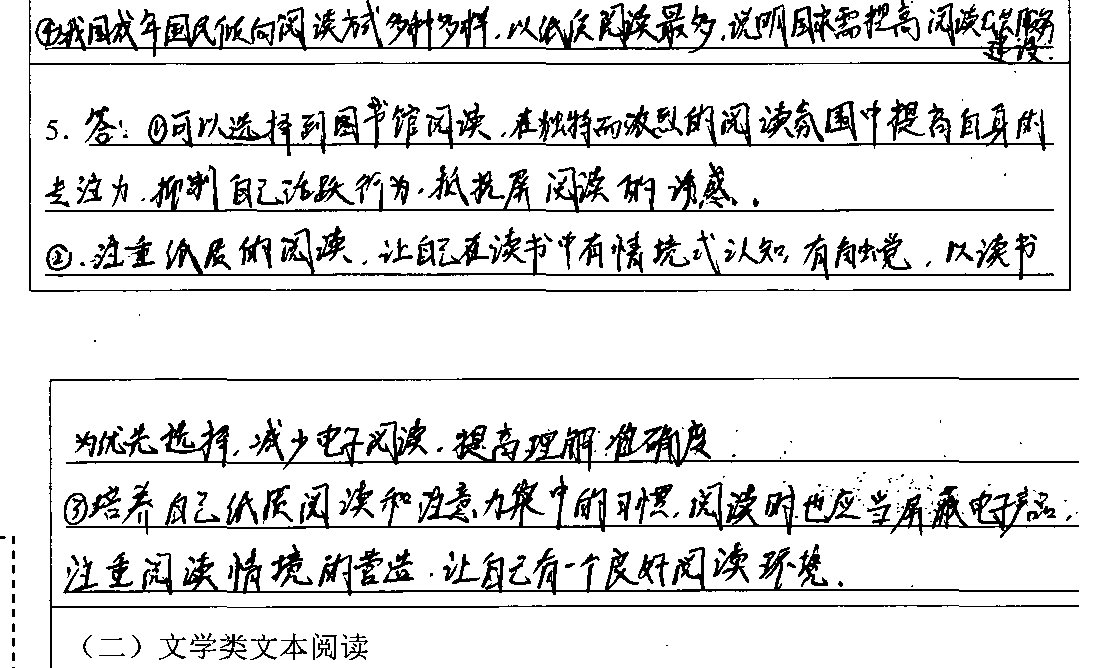 ④我国成年国民倾向阅读方式多种多样,以纸质阅读最多,说明国家需提高阅读服务
建设.
5. 答:①可以选择到图书馆阅读,在独特而浓烈的阅读氛围中提高自身的
专注力,抑制自己活跃行为,抵抗屏阅读的诱惑.
②.注重纸质的阅读,让自己在读书中有情境式认知,有触觉,以读书
为优先选择,减少电子阅读,提高理解准确度.
③培养自己纸质阅读和注意力集中的习惯,阅读时也应当屏蔽电子产品,
注重阅读情境的营造,让自己有一个良好阅读环境.
(二)文学类文本阅读